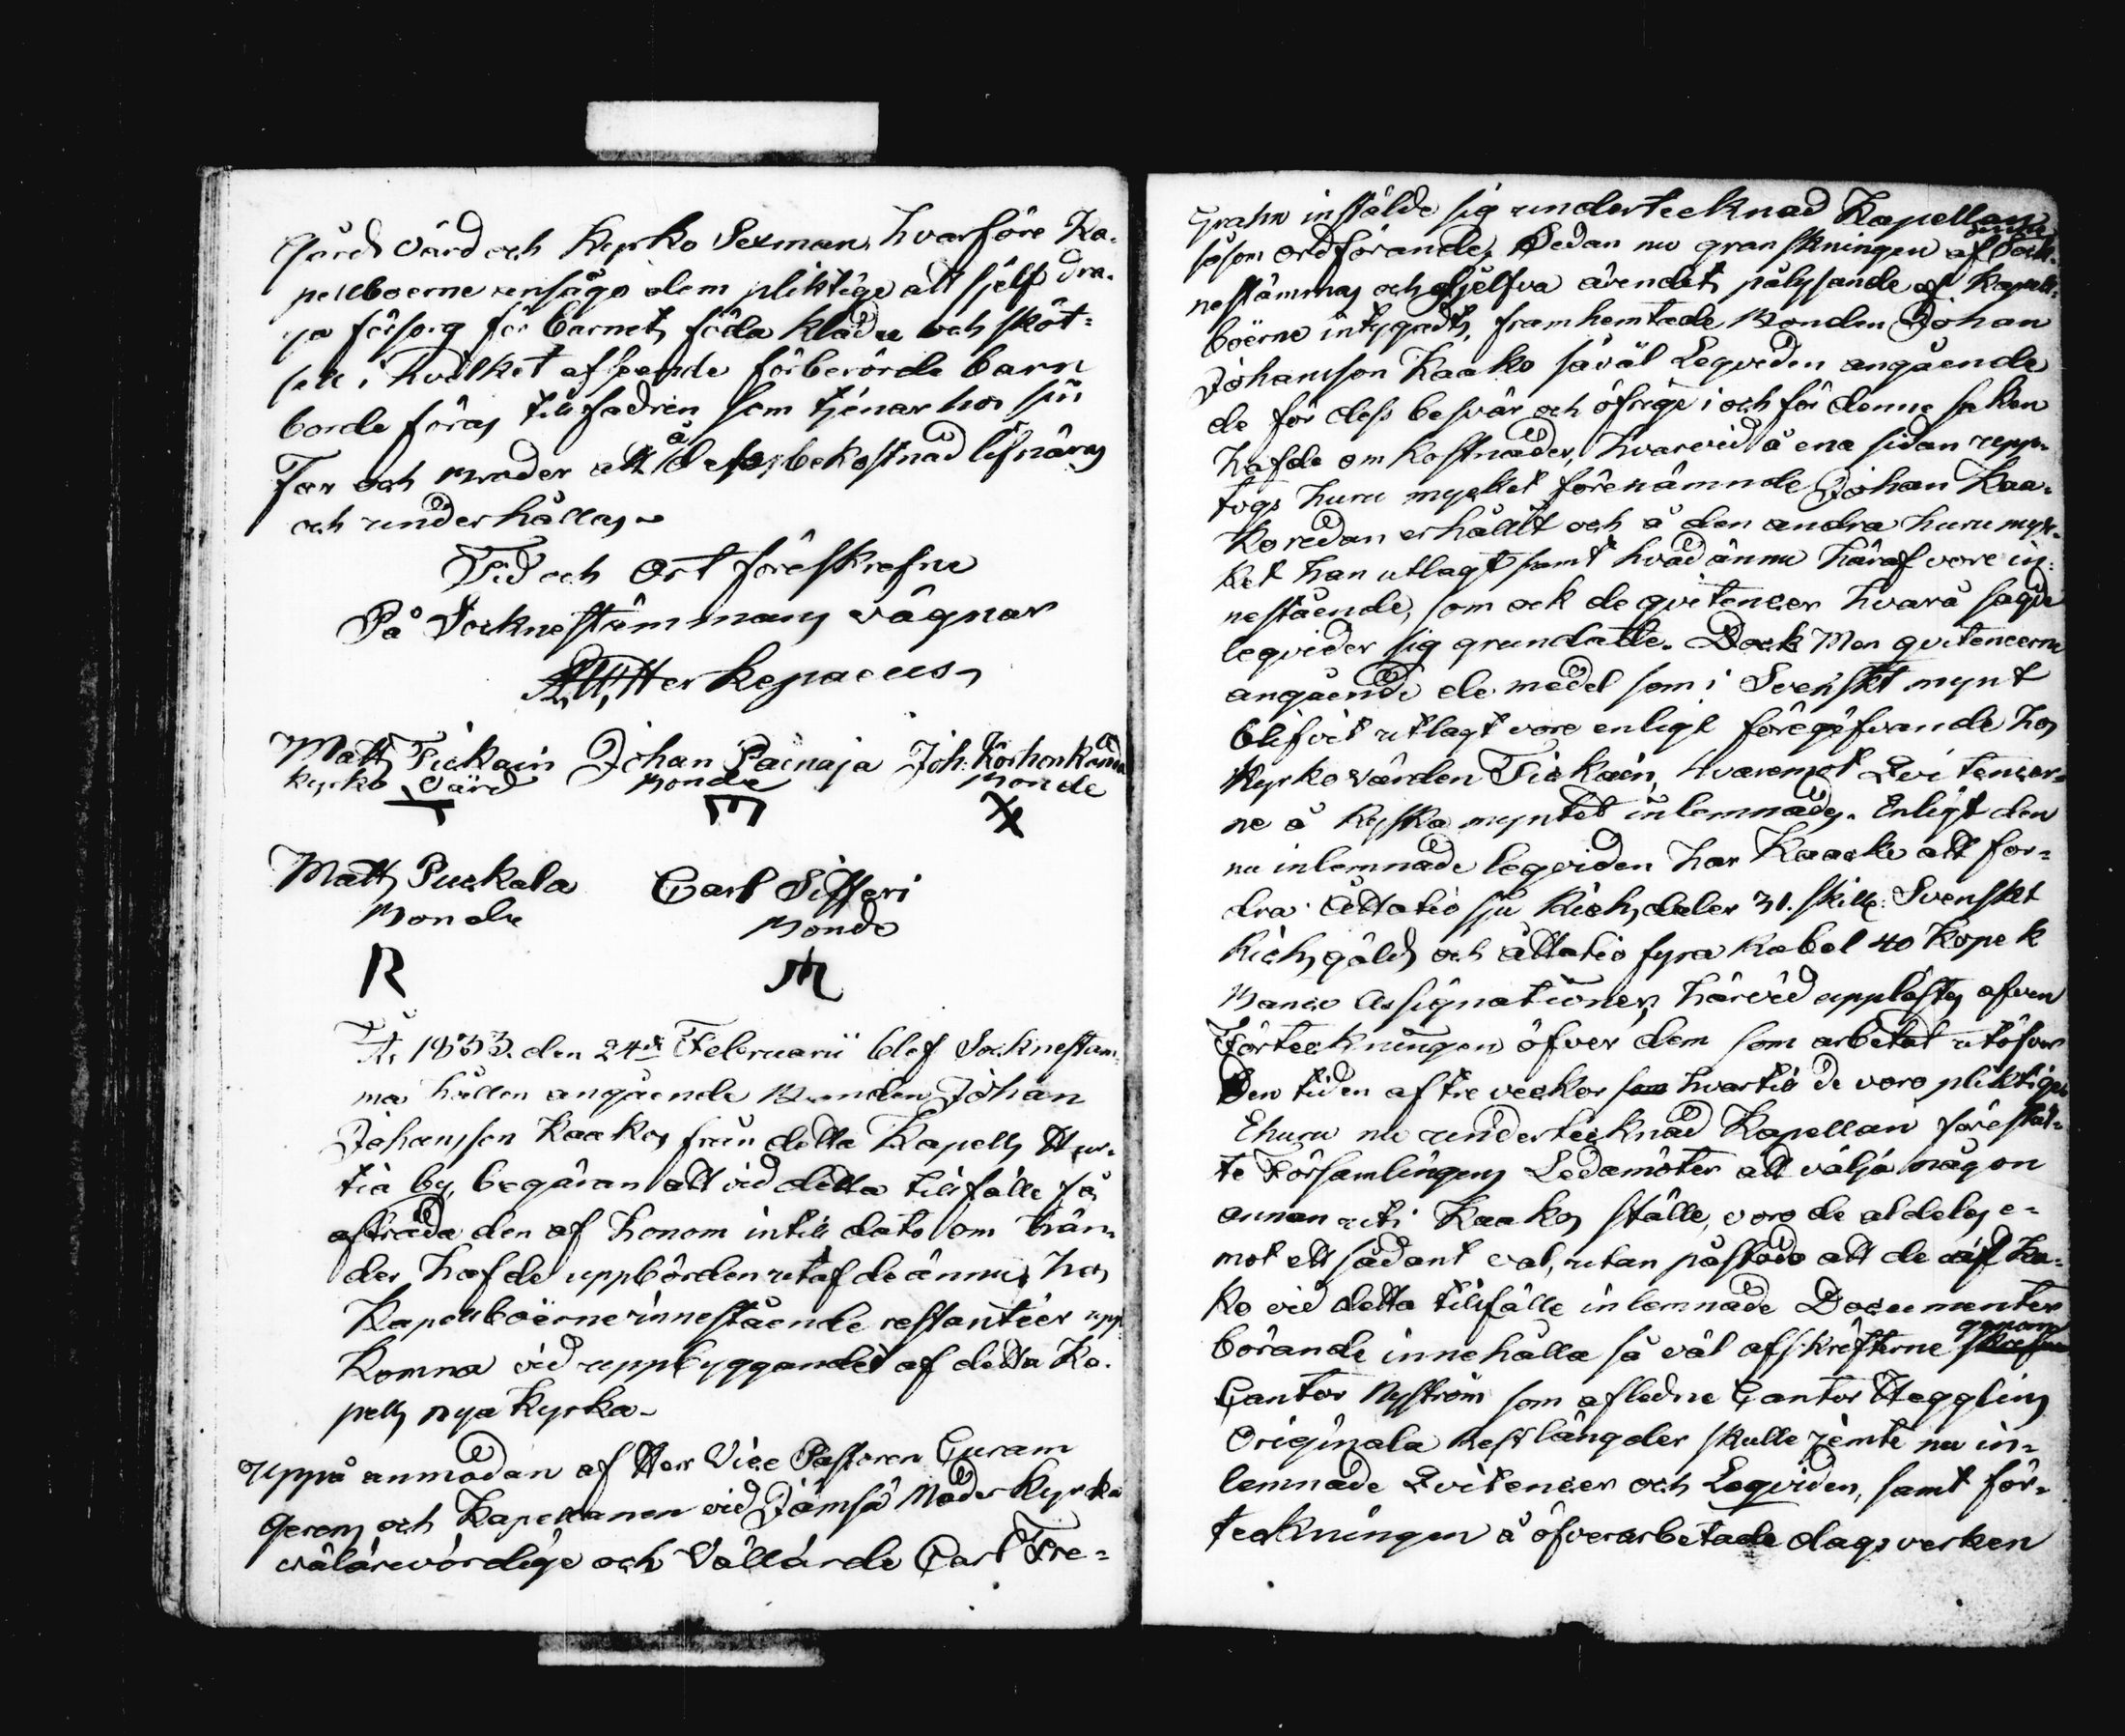 Gårds Värd och Kyrko Sexman, hvarföre Ka-
pellboerne ansågo dem pliktige att sjelf dra-
ga försorg för barnets föda kläder och sköt-
sel, i hvilket afseende förberörde barn
borde föras till fadren som tjenar hos sin
Far och moder att å dess bekostnad lifnäras
och underhållas.
Tid och Ort föreskrefne
På Sockne stämmans vägnar
Matts Tickain Johan Päinaja Joh: Korhonkanda
Kyrko Värd Bonde Bonde
Matts Puckala Carl Sifferi
Bonde Bonde
R
År 1833. den 24de Februarii blef Socknestäm-
ma hållen angående Bonden Johan
Johansson Kaakos från detta Kapells Hur-
tia by, begäran att vid detta tillfälle få
afträda den af honom intill dato om hän-
der hafde uppbörden utaf de ännu, hos
Kapellboerne innestående restantier upp-
komna vid uppbyggandet af detta Ka-
pells nya Kyrka.
Uppå anmodan af Herr Vice Pastoren Curam
Gerens och Kapellanen vid Jämsä Moder Kyrka
välärevördige och Vällärde Carl Fre-
Grahn instälde sig undertecknad Kapellan
såsom ordförande, Sedan nu granskningen af denne Sock-
nestämmas och sjelfva ärendets pålysande af Kapell-
boerne intygadts, framhemtade Bonden Johan
Johansson Kaako såväl Leqviden angående
de för dess besvär och öfrige i och för denne saken
hafde omkostnader, hvarvid å ena sidan upp-
togs huru mycket förenämnde Johan Kaa-
ko redan erhållit och å den andra huru myc-
ket han utlagt samt hvad ännu häraf vore in-
nestående, som ock de qvitencer hvarå sagde
leqvider sig grundatte. Dock Men qvitencerne
angående de medel som i Svenskt mynt
blifvit utlagt vore enligt föregifvande hos
Kyrkovärden Tickain, hvaremot Qvitencer-
ne å Ryska myntet inlemnades. Enligt den
nu inlemnade leqviden har Kaacko att for-
dra Åttatio sju Riksdaler 31. skill: Svenskt
Riksgälds och åttatio fyra Rubel 40 Kopek
Banco Assignationer, härvid upplästes äfven
Förteckningen öfver dem som arbetat utöfver
Den tiden af tre veckor som hvartil de voro pliktige.
Ehuru nu undertecknad Kapellan förestäl-
te Församlingens Ledamöter att välja någon
annan uti Kaakos ställe, voro de aldeles e-
mot ett sådant val, utan påstodo att de af Kaa-
ko vid detta tillfälle inlemnade Documenter
börande innehålla så väl afskrifterne genom skrefne
Cantor Nyström som afledne Cantor Hegglins
Originala Restlängder skulle jemte nu in-
lemnade Qvitencer och Leqviden, samt för-
teckningen å öfverarbetade dagsverken